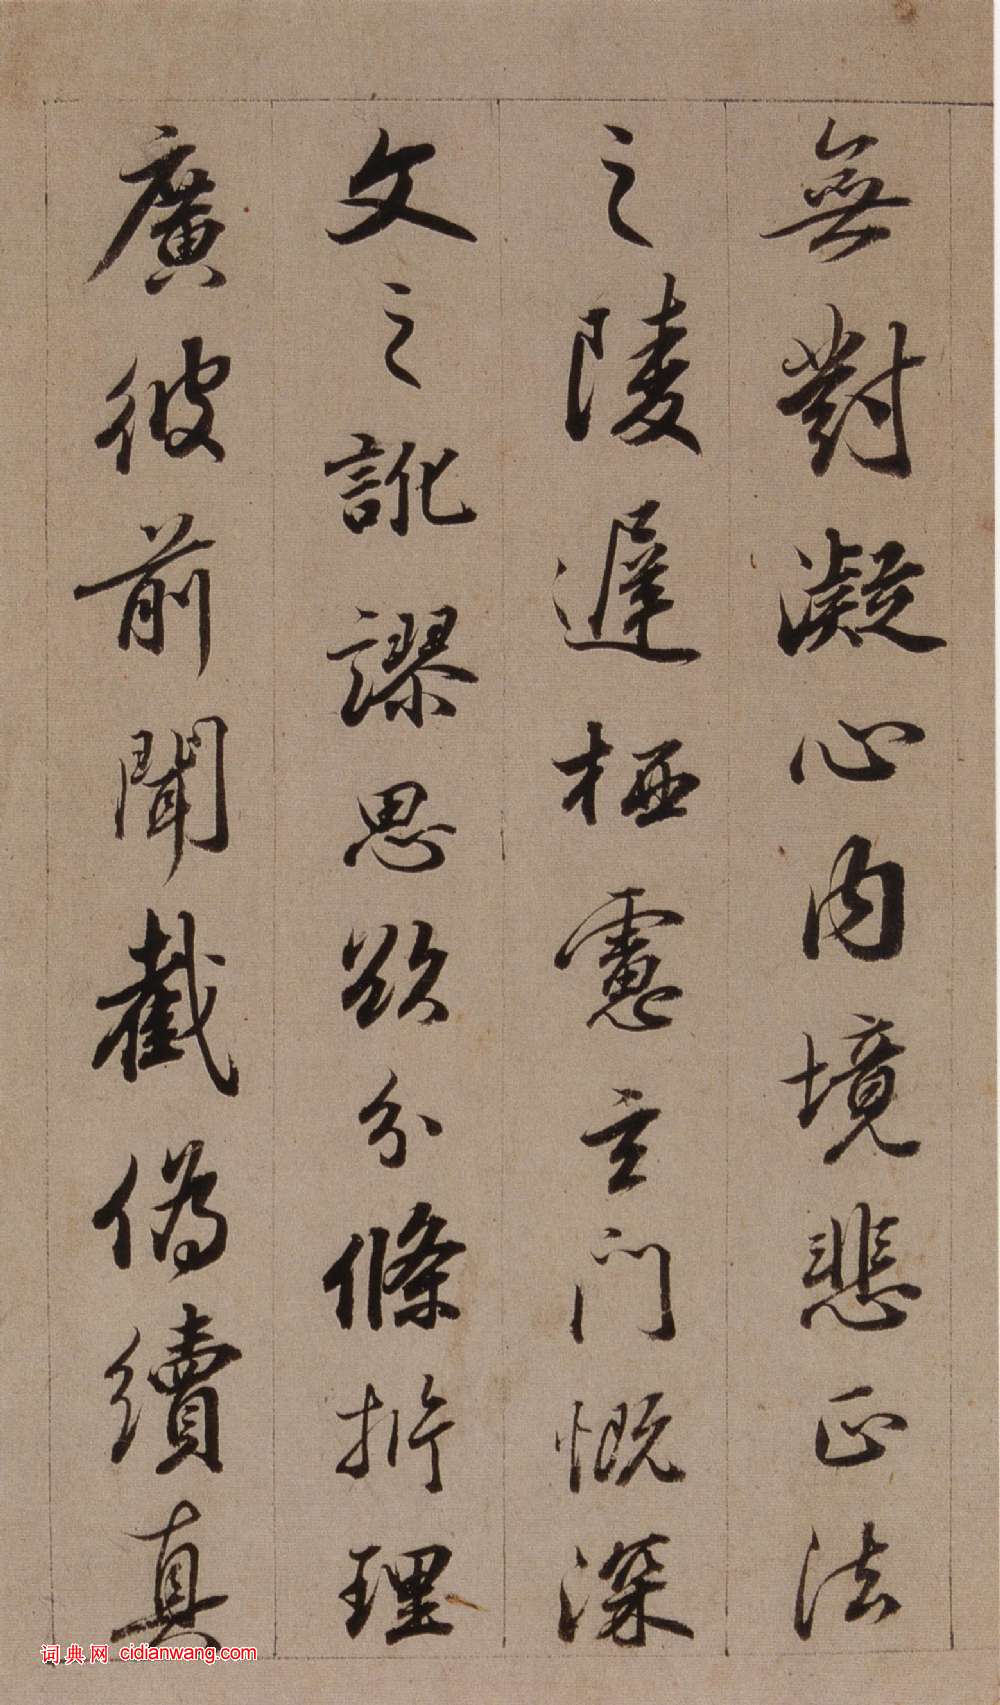 無對凝心內境悲正法
之陵遲栖慮玄門慨深
文之訛謬思欲分條析理
廣彼前聞截偽續真
词典网 cidianwang.com